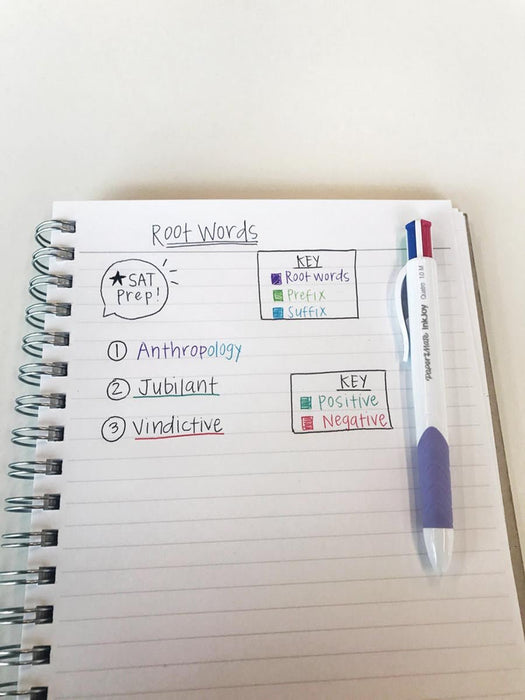 Root Words
★SAT
Prep!
KEY
Root words
Prefix
Suffix
① Anthropology
② Jubilant
③ Vindictive
KEY
Positive
Negative
PaperMate InkJoy Quatro 1.0 M